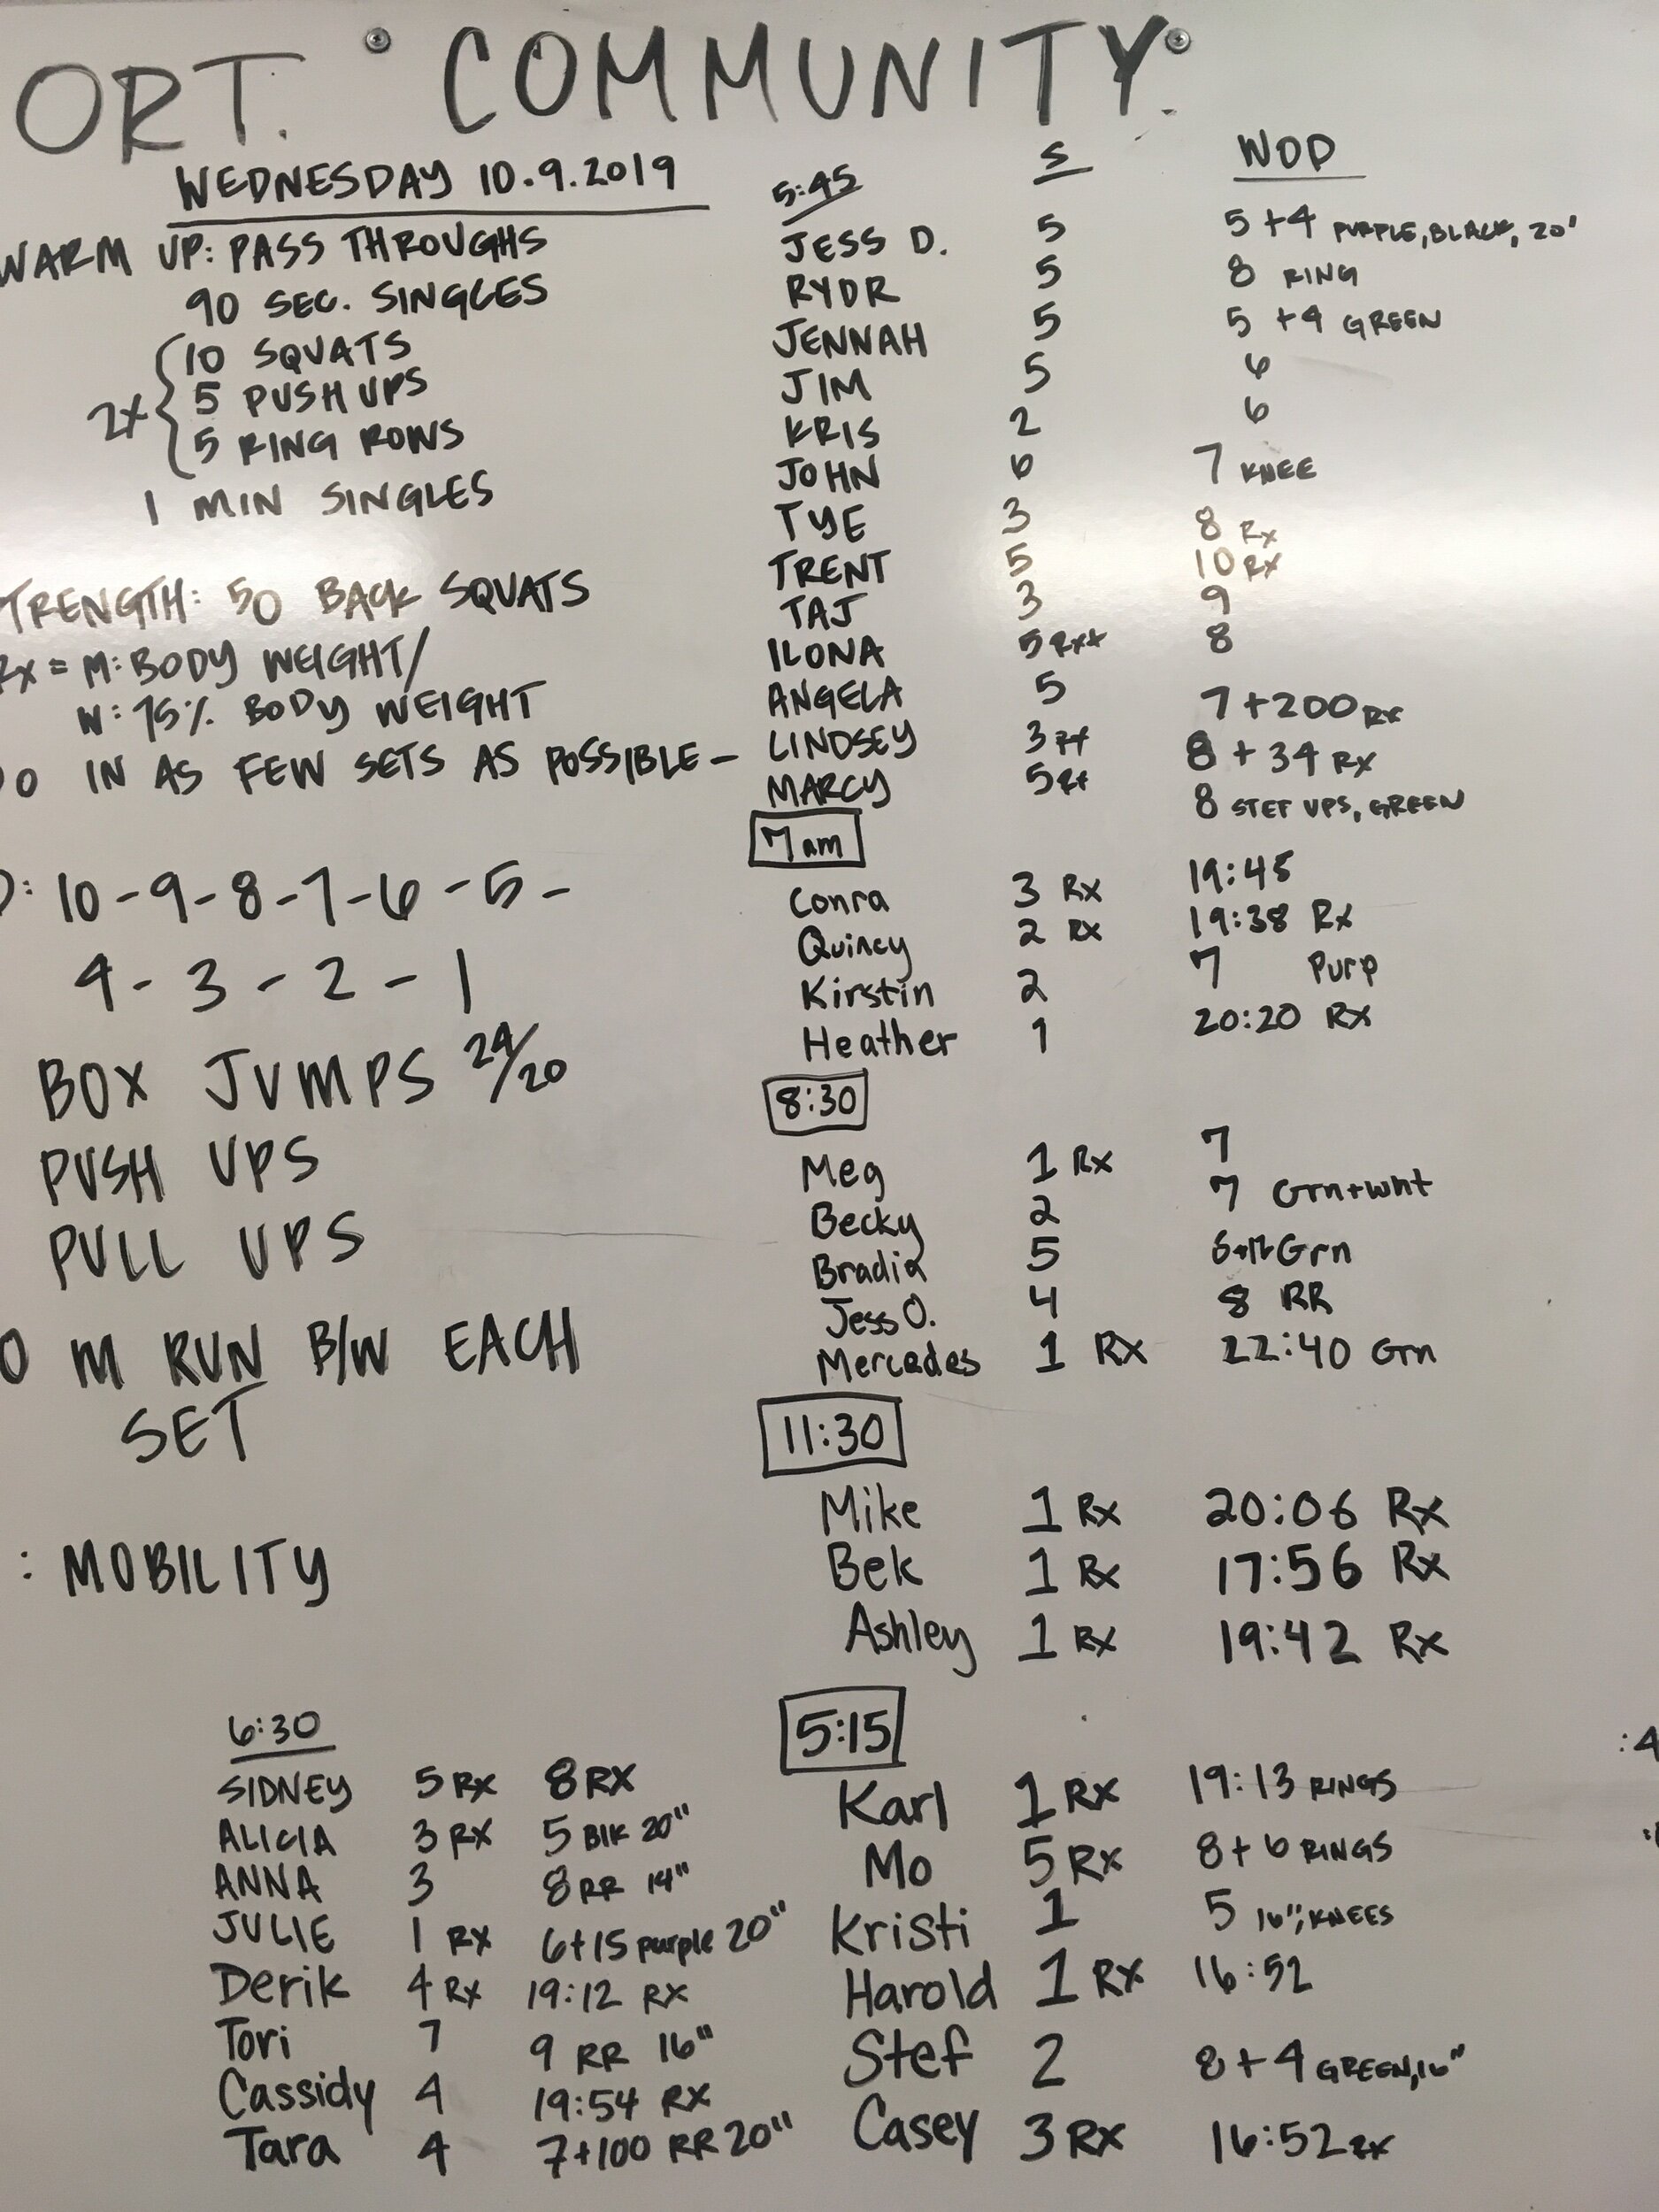 ORT. COMMUNITY.
WEDNESDAY 10.9.2019
WARM UP: PASS THROUGHS
90 SEC. SINGLES
2X { 10 SQUATS
5 PUSH UPS
5 RING ROWS
1 MIN SINGLES
TRENGTH: 50 BACK SQUATS
Rx = M: BODY WEIGHT/
W: 75% BODY WEIGHT
DO IN AS FEW SETS AS POSSIBLE-
: 10-9-8-7-6-5-
4-3-2-1
BOX JUMPS 24/20
PUSH UPS
PULL UPS
0 M RUN B/W EACH
SET
: MOBILITY
6:30
SIDNEY 5 RX 8 RX
ALICIA 3 RX 5 BlK 20"
ANNA 3 8 RR 14"
JULIE 1 RX 6+15 purple 20"
Derik 4 RX 19:12 RX
Tori 7 9 RR 16"
Cassidy 4 19:54 RX
Tara 4 7+100 RR 20"
5:45 S WOD
JESS D. 5 5+4 PURPLE, BLACK, 20'
RYDR 5 8 RING
JENNAH 5 5+4 GREEN
JIM 5 6
KRIS 2 6
JOHN 6 7 KNEE
TYE 3 8 Rx
TRENT 5 10 RX
TAJ 3 9
ILONA 5 Rx+ 8
ANGELA 5 7+200 RX
LINDSEY 3 8+34 RX
MARCY 5 8 STEP UPS, GREEN
7 am
Conra 3 Rx 19:45
Quincy 2 Rx 19:38 Rx
Kirstin 2 7 Purp
Heather 1 20:20 Rx
8:30
Meg 1 Rx 7
Becky 2 7 Grn+wht
Bradia 5 Grn
Jess O. 4 8 RR
Mercedes 1 Rx 22:40 Grn
11:30
Mike 1 Rx 20:06 Rx
Bek 1 Rx 17:56 Rx
Ashley 1 Rx 19:42 Rx
5:15
Karl 1 Rx 19:13 RINGS
Mo 5 Rx 8+6 RINGS
Kristi 1 5 16", KNEES
Harold 1 Rx 16:52
Stef 2 8+4 GREEN, 16"
Casey 3 Rx 16:52 RX
:4